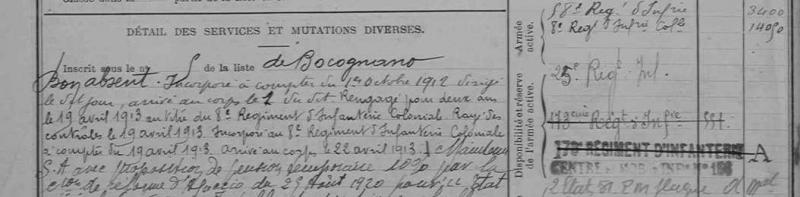 DÉTAIL DES SERVICES ET MUTATIONS DIVERSES.
Inscrit sous le n° 5 de la liste de Bocognano
Bon absent. Incorporé à compter du 1er octobre 1912 dirigé
le dit jour, arrivé au corps le 2 du dit. Rengagé pour deux ans
le 19 avril 1913 au titre du 8e Régiment d'Infanterie Coloniale. Rayé des
contrôles le 19 avril 1913. Incorporé au 8e Régiment d'Infanterie Coloniale
à compter du 19 avril 1913. arrivé au corps le 22 avril 1913. Maintenu
S.A avec proposition de pension temporaire 10% par la
de réforme d'Ajaccio du 25 Août 1920 pour
Armée active.
58e Regt d'Infrie 3400
8e Regt d'Infrie Colle
Disponibilité et réserve de l'armée active.
25e Regt Inf.
173eme Regt d'Infrie
173e RÉGIMENT D'INFANTERIE A
CENTRE MOB. INF.